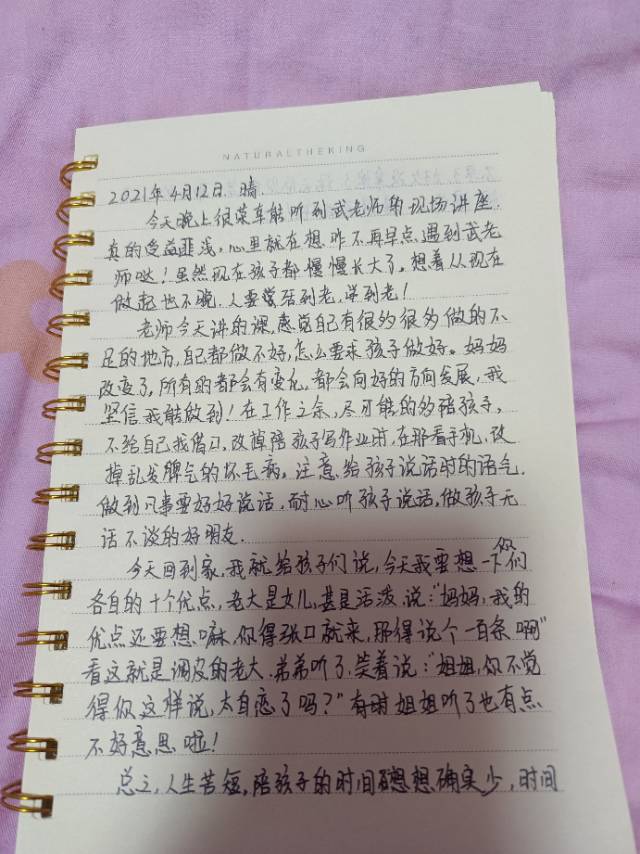 NATURALTHEKING
2021年4月12日 晴.
今天晚上很荣幸能听到武老师的现场讲座.
真的受益匪浅,心里就在想,咋不再早点遇到武老
师哒!虽然现在孩子都慢慢长大了,想着从现在
做起也不晚.人要学活到老,学到老!
老师今天讲的课,感觉自己有很多很多做的不
足的地方,自己都做不好,怎么要求孩子做好。妈妈
改变了,所有的都会有变化,都会向好的方向发展,我
坚信我能做到!在工作之余,尽可能的多陪孩子,
不给自己找借口,改掉陪孩子写作业时,在那看手机,改
掉乱发脾气的坏毛病,注意给孩子说话时的语气.
做到凡事要好好说话,耐心听孩子说话,做孩子无
话不谈的好朋友.
今天回到家,我就给孩子们说,今天我要想一下你们
各自的十个优点,老大是女儿,甚是活泼,说:“妈妈,我的
优点还要想嘛,你得张口就来,那得说个一百条啊”
看这就是调皮的老大,弟弟听了,笑着说:“姐姐,你不觉
得你这样说,太自恋了吗?”有时姐姐听了也有点
不好意思啦!
总之,人生苦短,陪孩子的时间想想确实少,时间